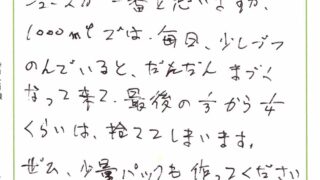 ジュースが一番と思いますが、
1000mlでは、毎日、少しづつ
のんでいると、だんだん まづく
なって来て、最後の1/3から1/4
くらいは、捨ててしまいます。
ぜひ、少量パックも 作ってください